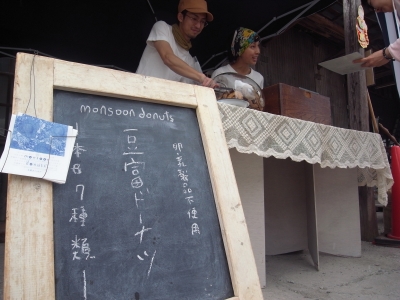 monsoon donuts
卵・乳製品不使用
豆富ドーナツ
本日7種類!